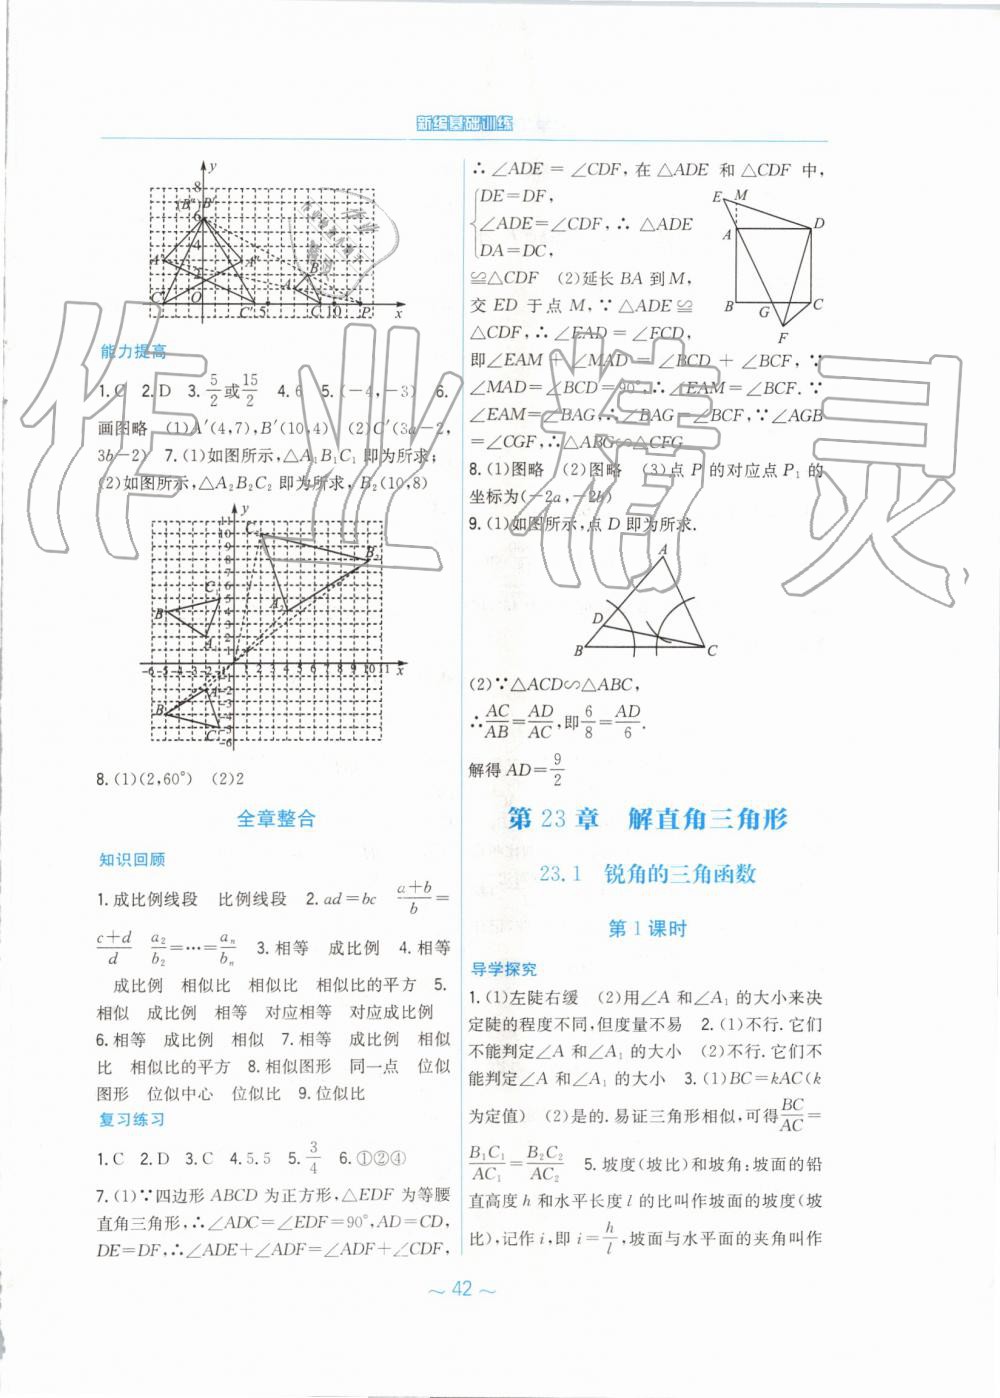 新编基础训练
能力提高
1. C 2. D 3. 5/2 或 15/2 4. 6 5. (－4,－3) 6.
画图略 (1)A′(4,7),B′(10,4) (2)C′(3a－2,
3b－2) 7. (1)如图所示,△A₁B₁C₁ 即为所求;
(2)如图所示,△A₂B₂C₂ 即为所求,B₂(10,8)
8. (1)(2,60°) (2)2
全章整合
知识回顾
1. 成比例线段 比例线段 2. ad＝bc (a＋b)/b＝
(c＋d)/d a₂/b₂＝…＝aₙ/bₙ 3. 相等 成比例 4. 相等
成比例 相似比 相似比 相似比的平方 5.
相似 成比例 相等 对应相等 对应成比例
6. 相等 成比例 相似 7. 相等 成比例 相似
比 相似比的平方 8. 相似图形 同一点 位似
图形 位似中心 位似比 9. 位似比
复习练习
1. C 2. D 3. C 4. 5.5 5. 3/4 6. ①②④
7. (1)∵四边形 ABCD 为正方形,△EDF 为等腰
直角三角形,∴∠ADC＝∠EDF＝90°,AD＝CD,
DE＝DF,∴∠ADE＋∠ADF＝∠ADF＋∠CDF,
∴ ∠ADE ＝ ∠CDF, 在 △ADE 和 △CDF 中,
DE＝DF,
∠ADE＝∠CDF, ∴ △ADE
DA＝DC,
≌△CDF (2)延长 BA 到 M,
交 ED 于点 M, ∵ △ADE ≌
△CDF, ∴ ∠EAD ＝ ∠FCD,
即∠EAM ＋ ∠MAD ＝ ∠BCD ＋ ∠BCF, ∵
∠MAD＝∠BCD＝90°, ∴∠EAM＝∠BCF. ∵
∠EAM＝∠BAG, ∴∠BAG＝∠BCF, ∵∠AGB
＝∠CGF, ∴△ABG∽△CFG
8. (1)图略 (2)图略 (3)点 P 的对应点 P₁ 的
坐标为(－2a,－2b)
9. (1)如图所示,点 D 即为所求.
(2)∵△ACD∽△ABC,
∴AC/AB＝AD/AC,即 6/8＝AD/6.
解得 AD＝9/2
第 23 章 解直角三角形
23.1 锐角的三角函数
第 1 课时
导学探究
1. (1)左陡右缓 (2)用∠A 和∠A₁ 的大小来决
定陡的程度不同,但度量不易 2. (1)不行. 它们
不能判定∠A 和∠A₁ 的大小 (2)不行. 它们不
能判定∠A 和∠A₁ 的大小 3. (1)BC＝kAC(k
为定值) (2)是的. 易证三角形相似,可得 BC/AC＝
B₁C₁/AC₁＝B₂C₂/AC₂ 5. 坡度(坡比)和坡角:坡面的铅
直高度 h 和水平长度 l 的比叫作坡面的坡度(坡
比),记作 i,即 i＝h/l,坡面与水平面的夹角叫作
～ 42 ～
作业精灵